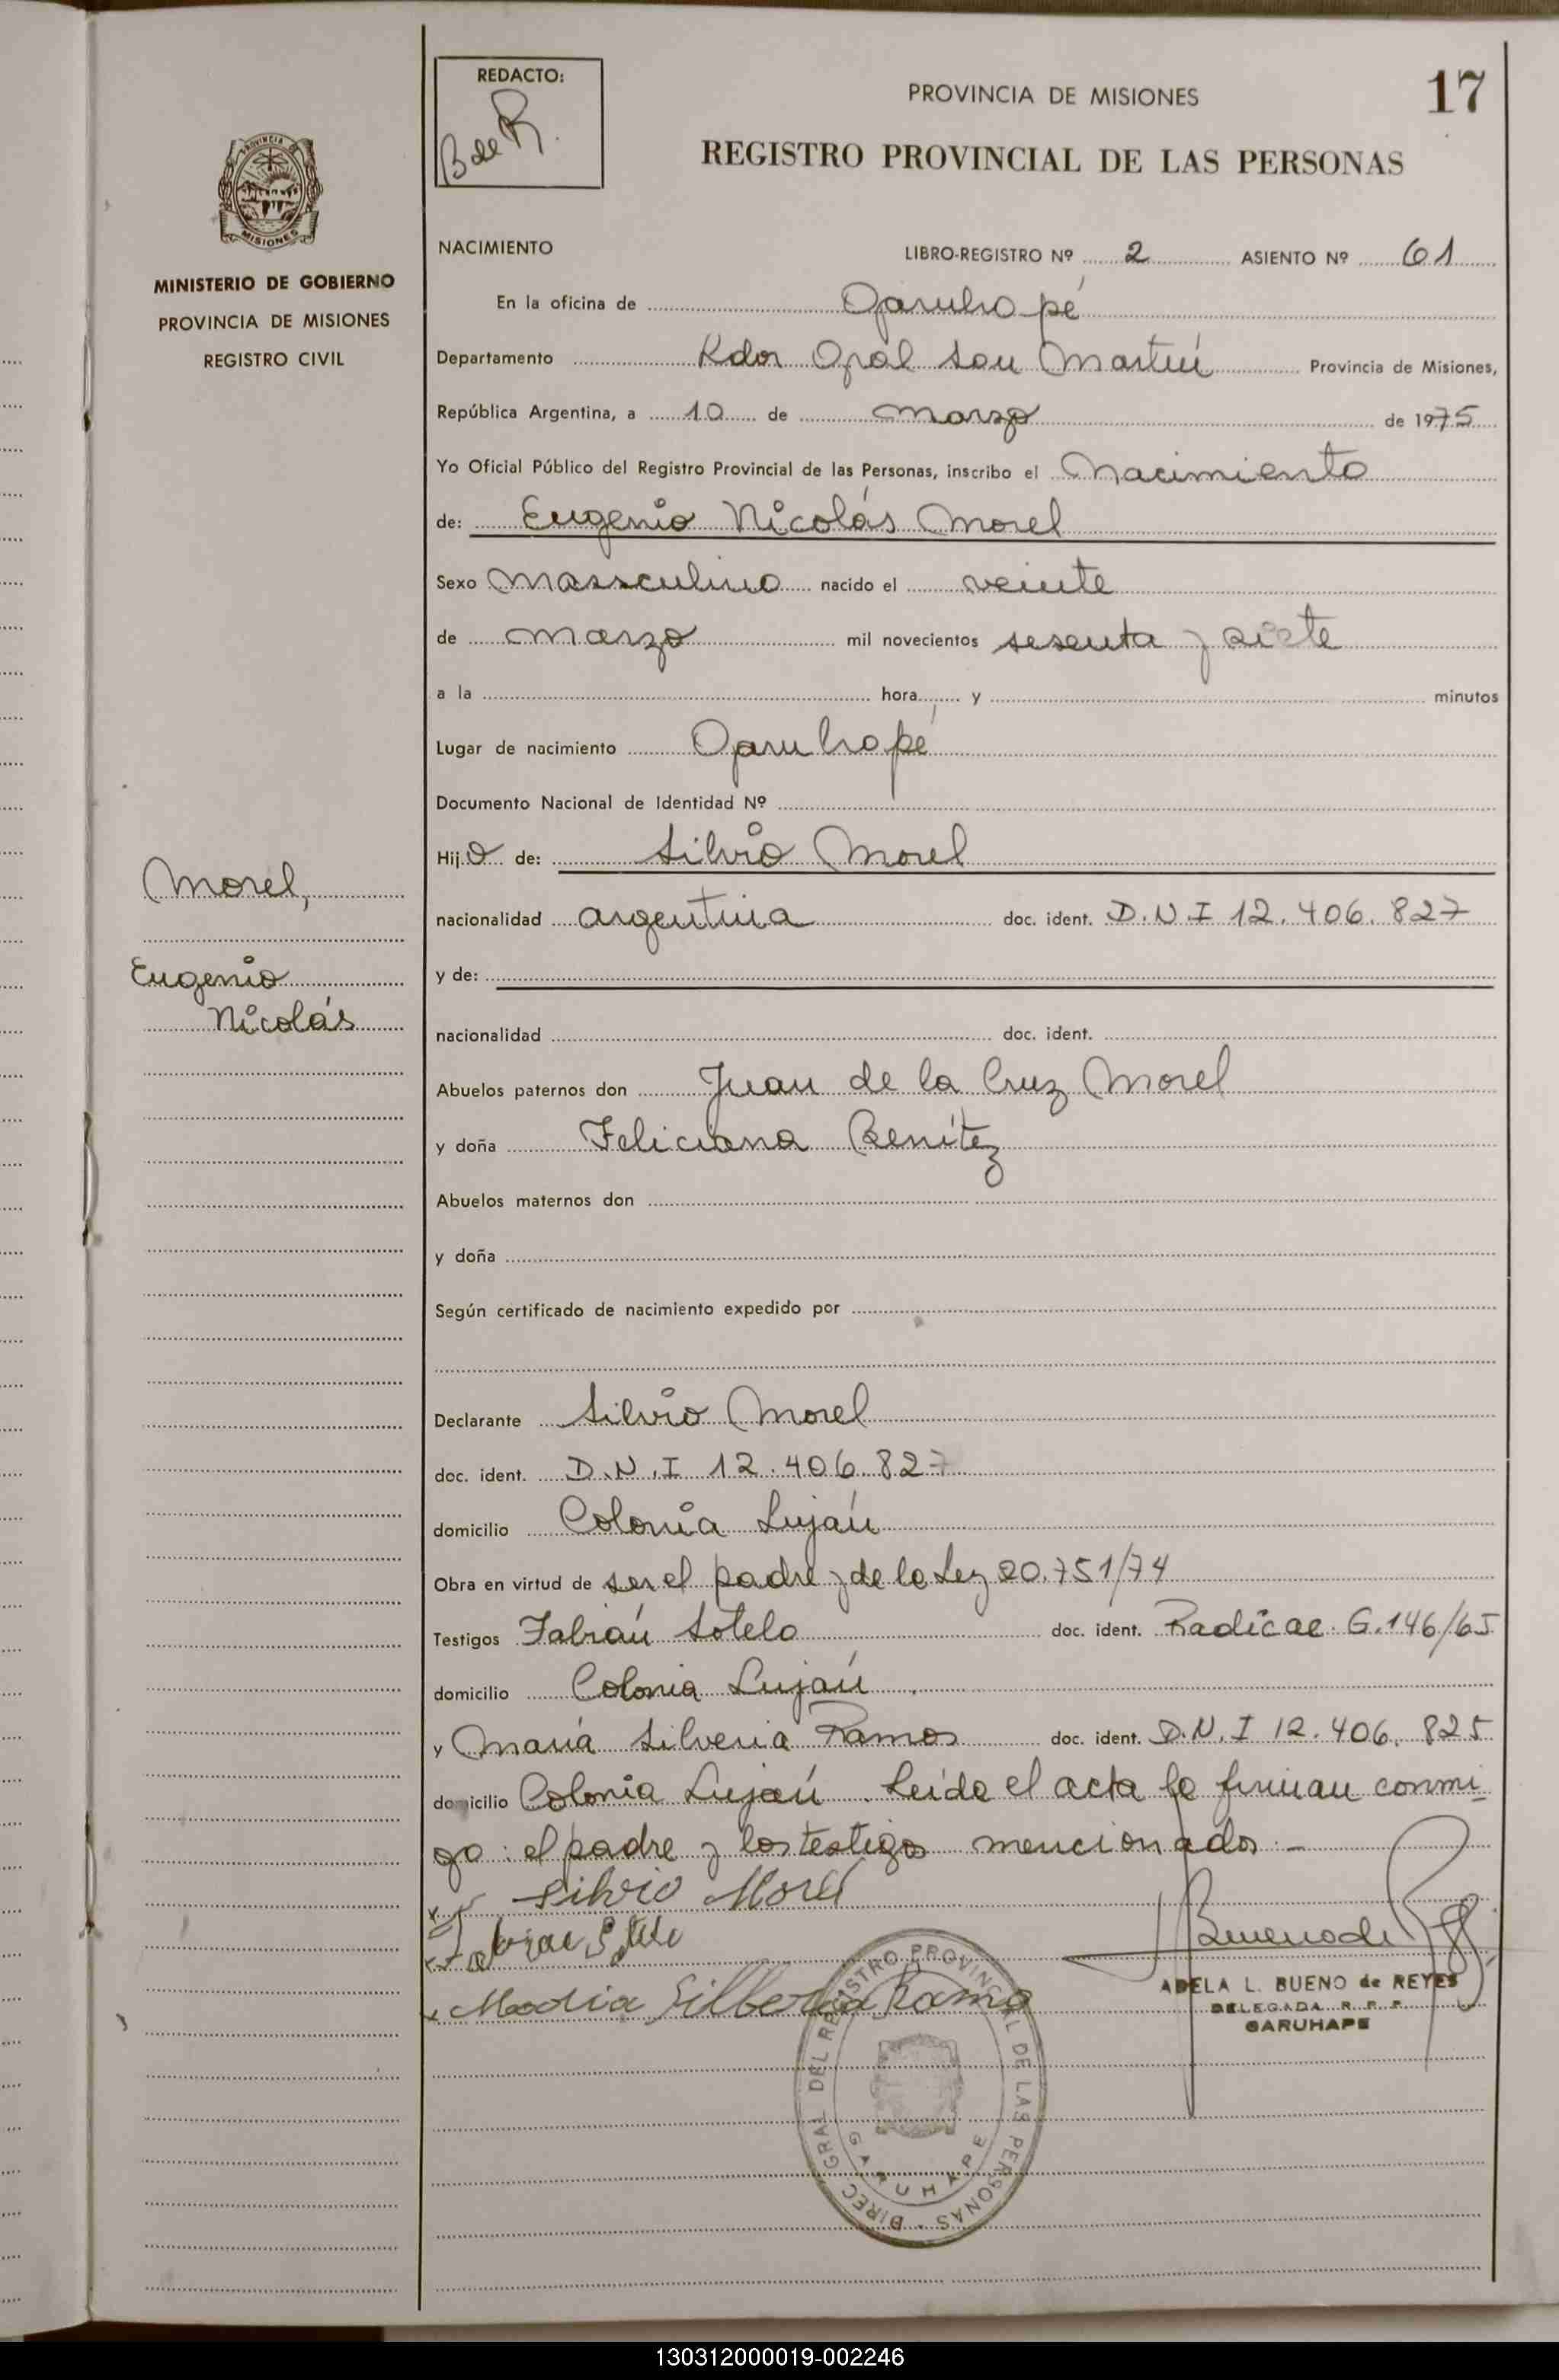 REDACTO:
B de R.
PROVINCIA DE MISIONES
17
REGISTRO PROVINCIAL DE LAS PERSONAS
MISIONES
MINISTERIO DE GOBIERNO
PROVINCIA DE MISIONES
REGISTRO CIVIL
NACIMIENTO LIBRO-REGISTRO Nº 2 ASIENTO Nº 61
En la oficina de Garuhapé
Departamento Ldor Gral San Martín Provincia de Misiones,
República Argentina, a 10 de marzo de 1975
Yo Oficial Público del Registro Provincial de las Personas, inscribo el Nacimiento
de: Eugenio Nicolás Morel
Sexo massculino nacido el veinte
de marzo mil novecientos sesenta y siete
a la hora y minutos
Lugar de nacimiento Garuhapé
Documento Nacional de Identidad Nº
Hijo de: Silvio Morel
Morel,
nacionalidad argentina doc. ident. D.N.I 12.406.827
Eugenio
Nicolás
y de:
nacionalidad doc. ident.
Abuelos paternos don Juan de la Cruz Morel
y doña Feliciana Benítez
Abuelos maternos don
y doña
Según certificado de nacimiento expedido por
Declarante Silvio Morel
doc. ident. D.N.I 12.406.827
domicilio Colonia Luján
Obra en virtud de ser el padre y de la Ley 20.751/74
Testigos Fabián Sotelo doc. ident. Radicac G.146/65
domicilio Colonia Luján.
y María Silveria Ramos doc. ident. D.N.I 12.406.825
domicilio Colonia Luján. Leída el acta la firman conmi-
go: el padre y los testigos mencionados.-
x Silvio Morel
x Fabian Sotelo
x Maria Silberia Ramos
Bueno de
ADELA L. BUENO de REYES
DELEGADA R. P. P.
GARUHAPE
DIREC. GRAL DEL REGISTRO PROVINCIAL DE LAS PERSONAS
GARUHAPE
130312000019-002246